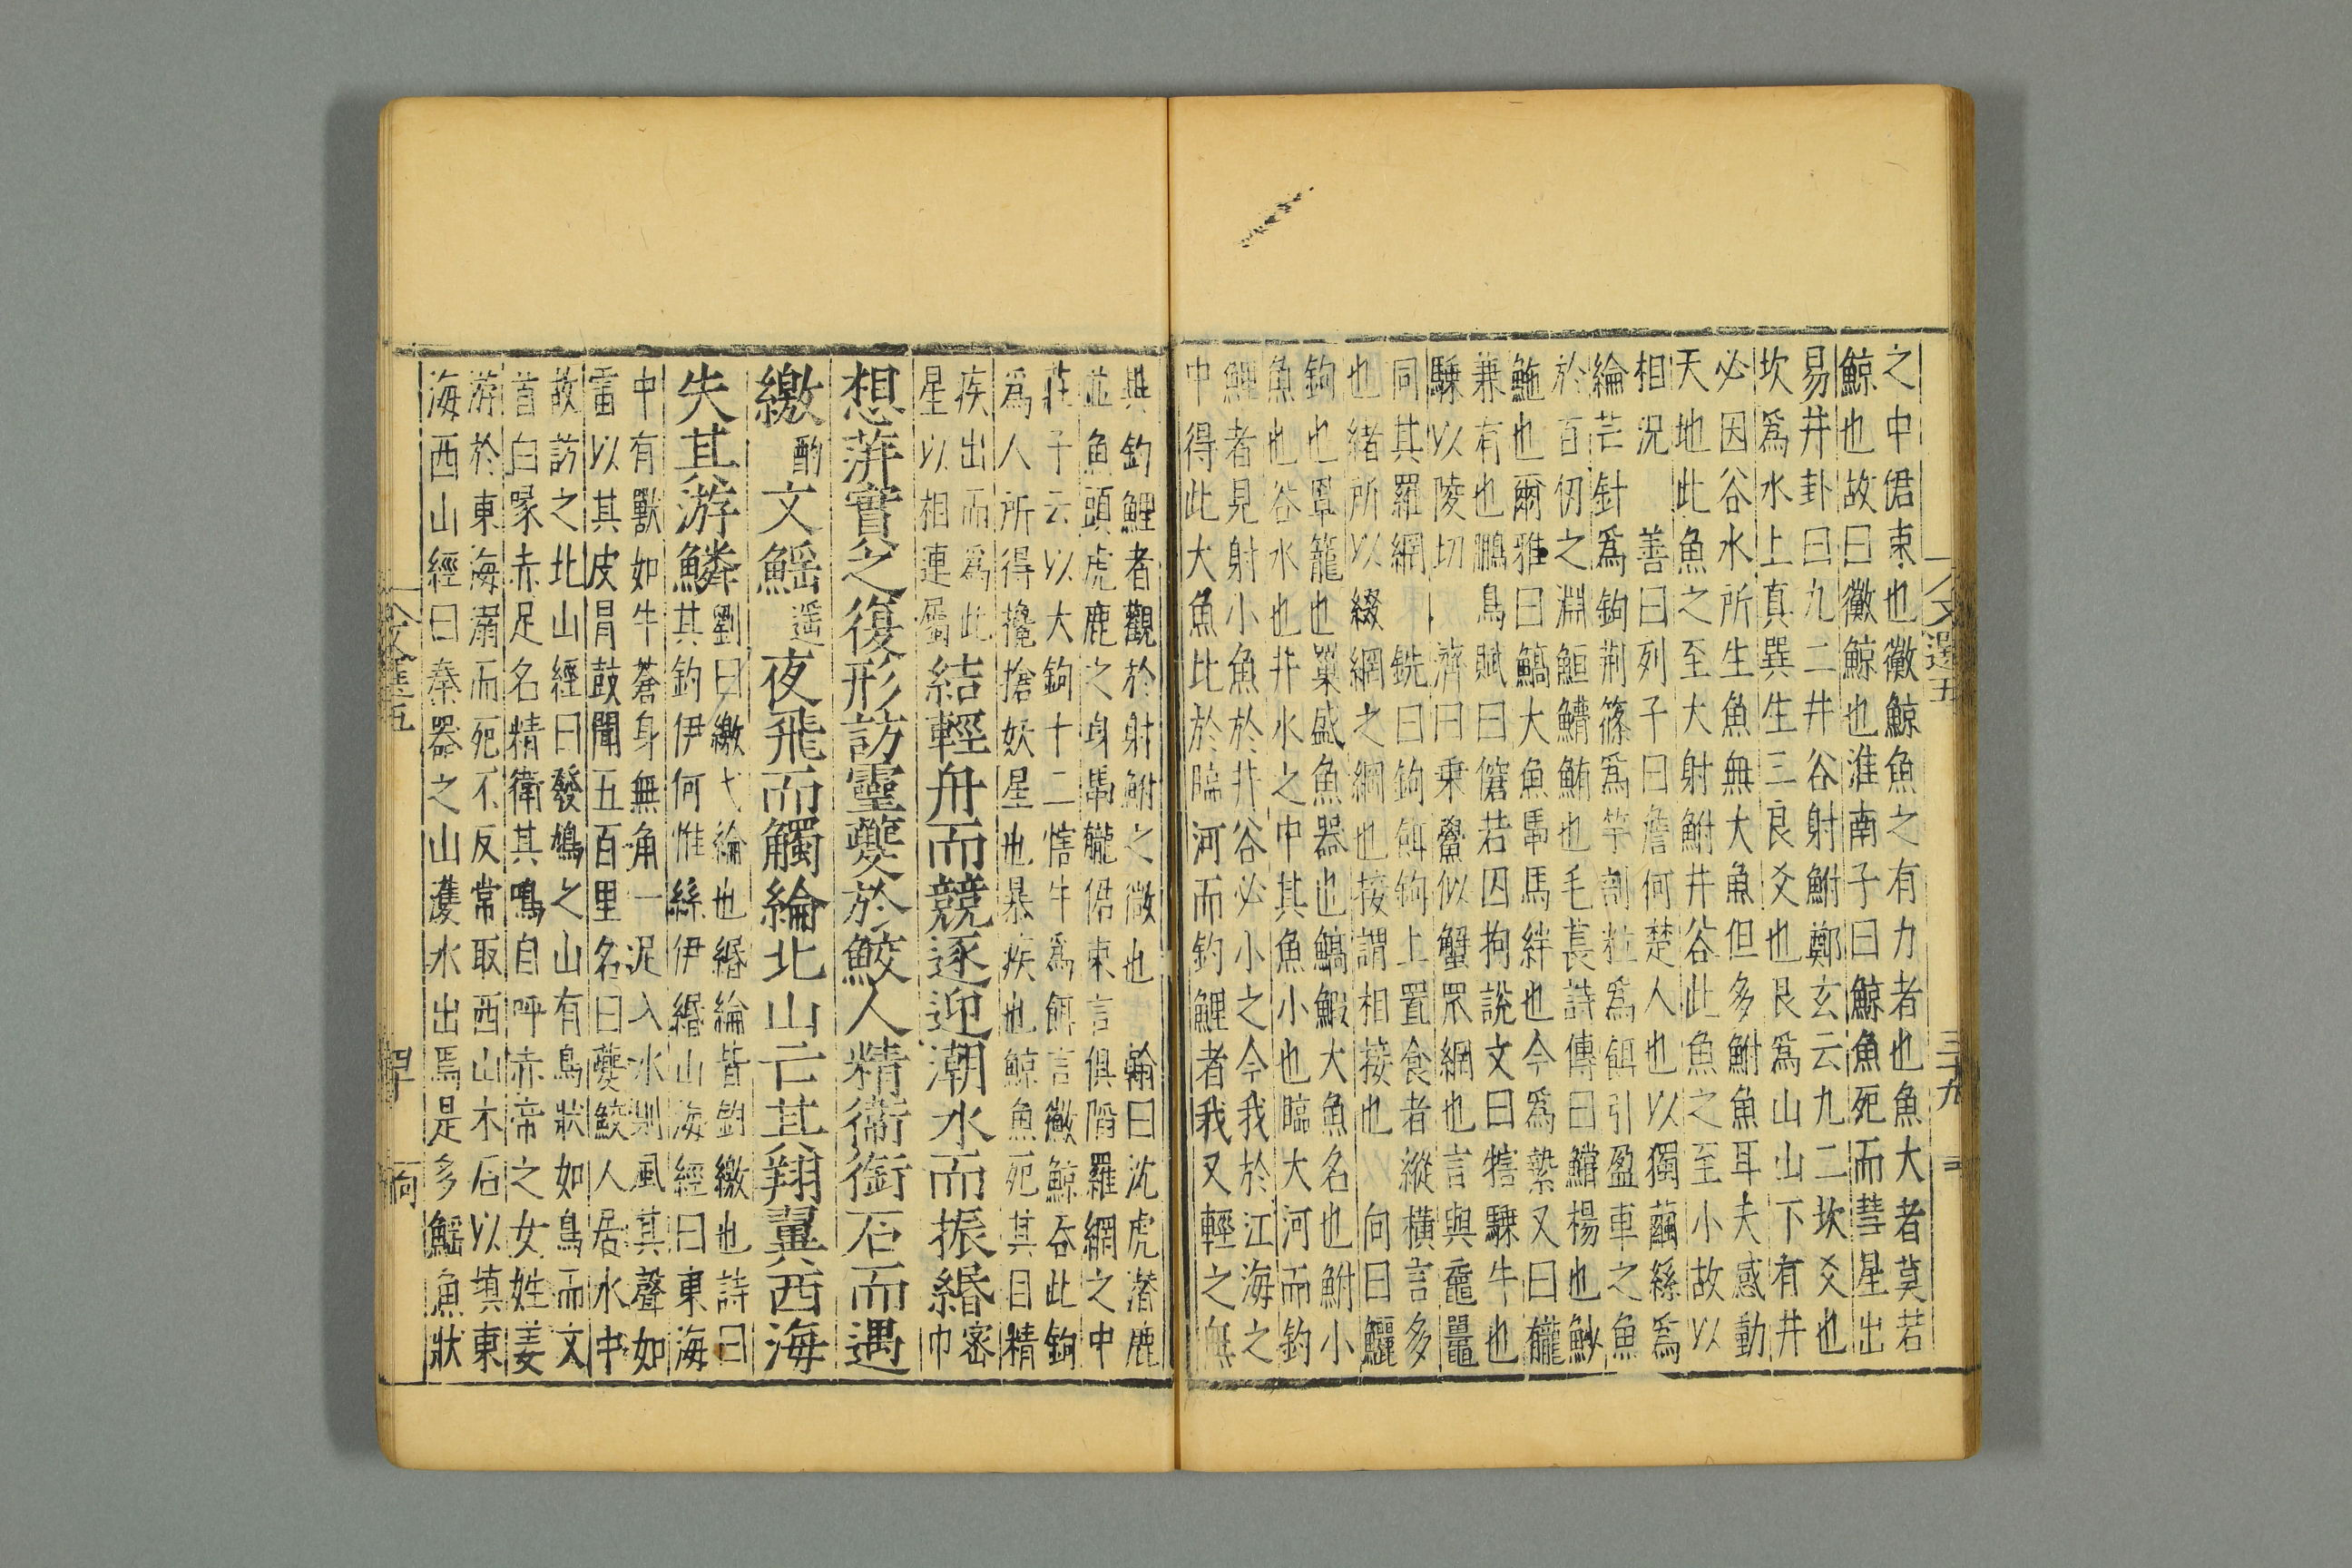 之中偆束也黴鯨魚之有力者也魚大者莫若
鯨也故曰黴鯨也淮南子曰鯨魚死而彗星出
易井卦曰九二井谷射鮒鄭玄云九二坎爻也
坎爲水上真巽生三艮爻也艮爲山山下有井
必因谷水所生魚無大魚但多鮒魚耳夫感動
天地此魚之至大射鮒井谷此魚之至小故以
相況 善曰列子曰詹何楚人也以獨繭絲爲
綸芒針爲鉤荊篠爲竿剖粒爲餌引盈車之魚
於百仞之淵䱎鱃鮪也毛萇詩傳曰鱨楊也魦
鮀也爾雅曰鰝大魚馽馬絆也今爲縶又曰櫳
兼有也鵩鳥賦曰窘若囚拘說文曰犗騬牛也
騬以陵切 濟曰乘鱟似蟹罘網也言與黿鼉
同其羅網 銑曰鉤餌鉤上置食者縱橫言多
也緒所以綴網之綱也接謂相接也 向曰鱺
鉤也罩籠也䍤盛魚器也鰝鰕大魚名也鮒小
魚也谷水也井水之中其魚小也臨大河而釣
鯉者見射小魚於井谷必小之今我於江海之
中得此大魚比於臨河而釣鯉者我又輕之無
文選五
三十九
與釣鯉者觀於射鮒之微也 翰曰沈虎潛鹿
並魚頭虎鹿之身馽櫳偆束言俱䧟羅網之中
莊子云以大鉤十二犗牛爲餌言黴鯨吞此鉤
爲人所得攙搶妖星也暴疾也鯨魚死其目精
疾出而爲此
星以相連屬
結輕舟而競逐迎潮水而振緡密
巾
想蓱實之復形訪靈夔於鮫人精衞銜石而遇
繳酌文鰩遥夜飛而觸綸北山亡其翔翼西海
失其游鱗劉曰繳弋綸也緡綸昔釣繳也詩曰
其釣伊何惟絲伊緡山海經曰東海
中有獸如牛蒼身無角一泥入水則風其聲如
雷以其皮冒鼓聞五百里名曰夔鮫人居水中
故訪之北山經曰發鳩之山有鳥狀如烏而文
首白喙赤足名精衛其鳴自呼赤帝之女姓姜
游於東海溺而死不反常取西山木石以填東
海西山經曰秦器之山濩水出焉是多鰩魚狀
文選五
四十
何